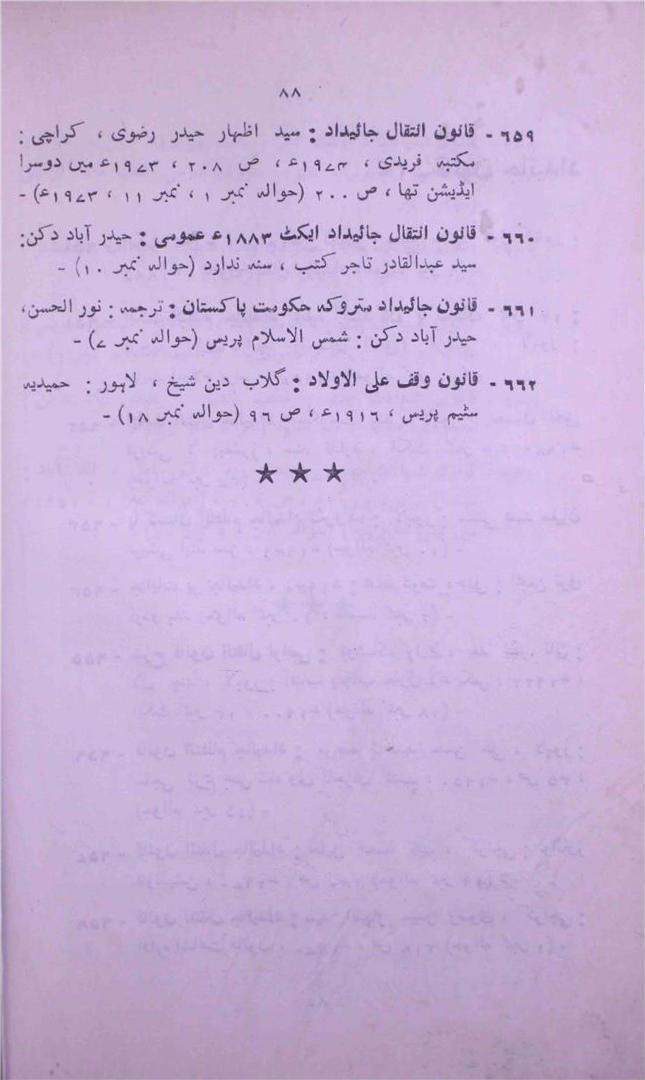 ۸۸
۶۵۹ - قانون انتقال جائیداد : سید اظہار حیدر رضوی ، کراچی :
مکتبہ فریدی ، ۱۹۷۴ء ، ص ۲۰۸ ، ۱۹۷۳ء میں دوسرا
ایڈیشن تھا ، ص ۲۰۰ (حوالہ نمبر ۱ ، نمبر ۱۱ ، ۱۹۷۳ء) -
۶۶۰ - قانون انتقال جائیداد ایکٹ ۱۸۸۳ء عمومی : حیدر آباد دکن :
سید عبدالقادر تاجر کتب ، سنہ ندارد (حوالہ نمبر ۱۰) -
۶۶۱ - قانون جائیداد متروکہ حکومت پاکستان : ترجمہ : نور الحسن ،
حیدر آباد دکن : شمس الاسلام پریس (حوالہ نمبر ۷) -
۶۶۲ - قانون وقف علی الاولاد : گلاب دین شیخ ، لاہور : حمیدیہ
سٹیم پریس ، ۱۹۱۶ء ، ص ۹۶ (حوالہ نمبر ۱۸) -